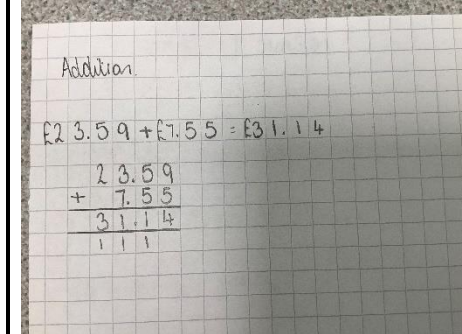 Addition
£23.59 + £7.55 = £31.14
23.59
+ 7.55
31.14
1 1 1